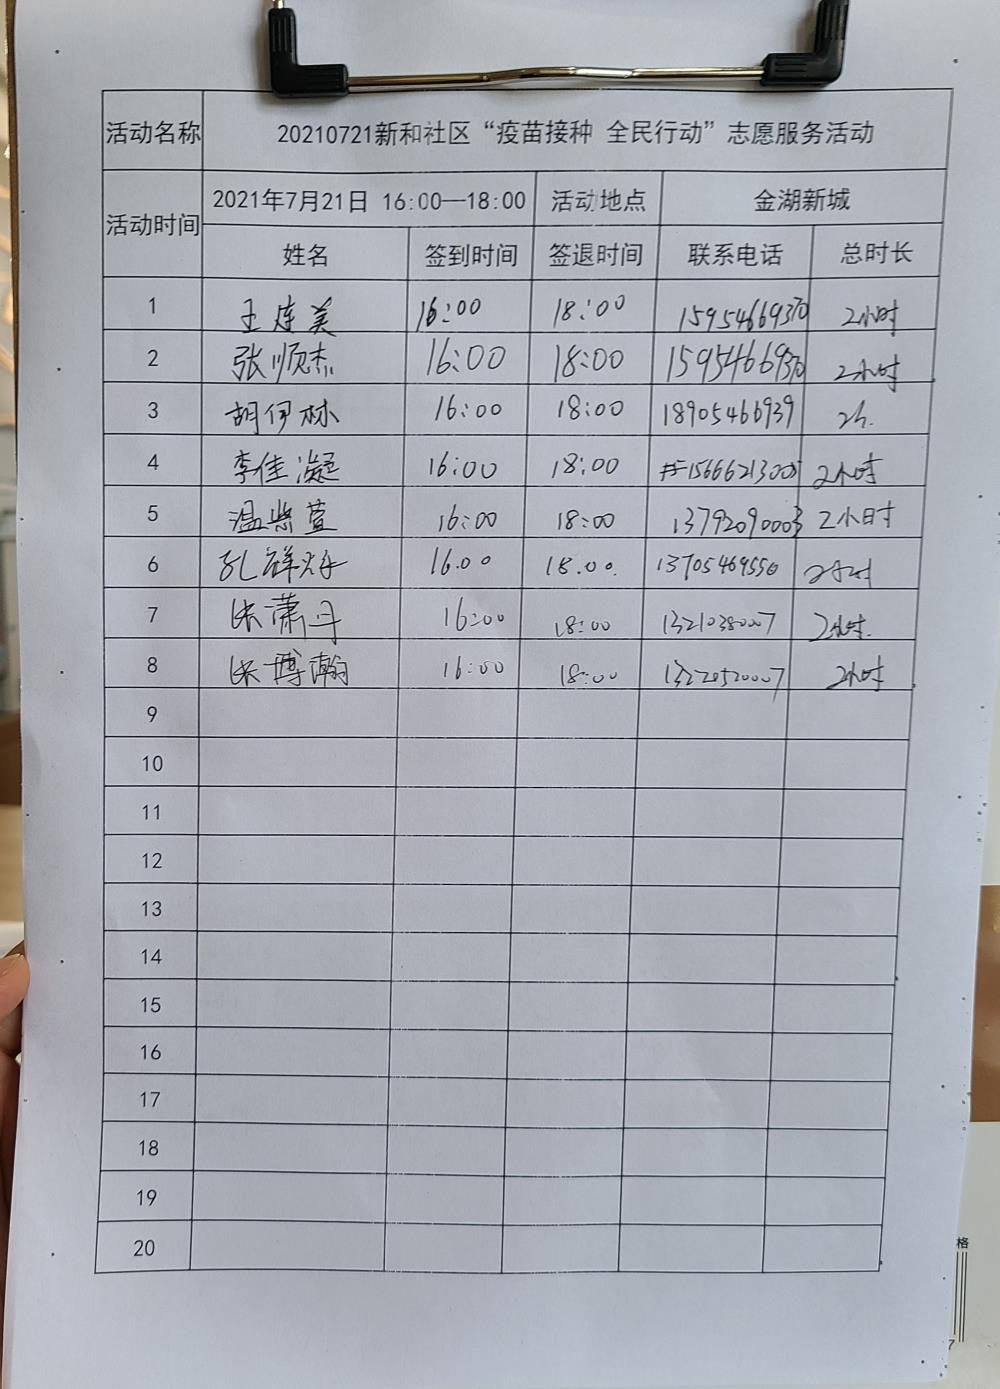 活动名称 20210721新和社区“疫苗接种 全民行动”志愿服务活动
活动时间 2021年7月21日 16:00—18:00 活动地点 金湖新城
姓名 签到时间 签退时间 联系电话 总时长
1 王连美 16:00 18:00 15954669370 2小时
2 张顺杰 16:00 18:00 15954669370 2小时
3 胡伊林 16:00 18:00 18905466939 2h.
4 李佳凝 16:00 18:00 15666213005 2小时
5 温紫萱 16:00 18:00 13792090003 2小时
6 孔祥 16.00 18.00. 13705469550 2小时
7 张萧丹 16:00 18:00 13210380007 2小时.
8 张博瀚 16:00 18:00 13220520007 2小时
9
10
11
12
13
14
15
16
17
18
19
20
格
7